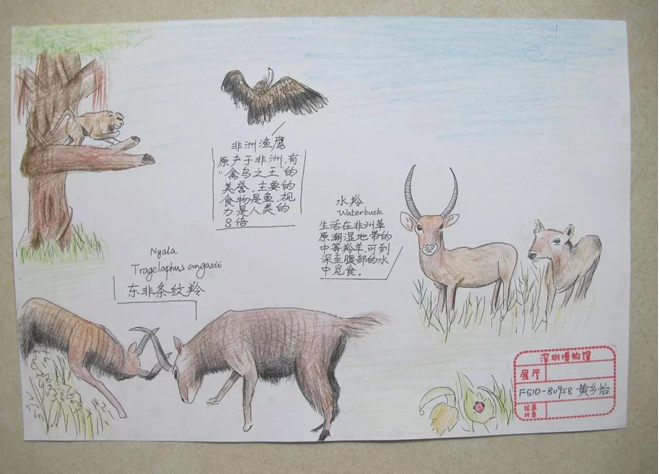 非洲渔鹰
原产于非洲,有
“禽鸟之王”的
美誉。主要的
食物是鱼,视
力是人类的
8倍
水羚
Waterbuck
生活在非洲草
原潮湿地带的
中等羚羊,可到
深至腹部的水
中觅食。
Nyala
Tragelaphus angasii
东非条纹羚
深圳博物馆
展厅
F51D-80958 黄乡怡